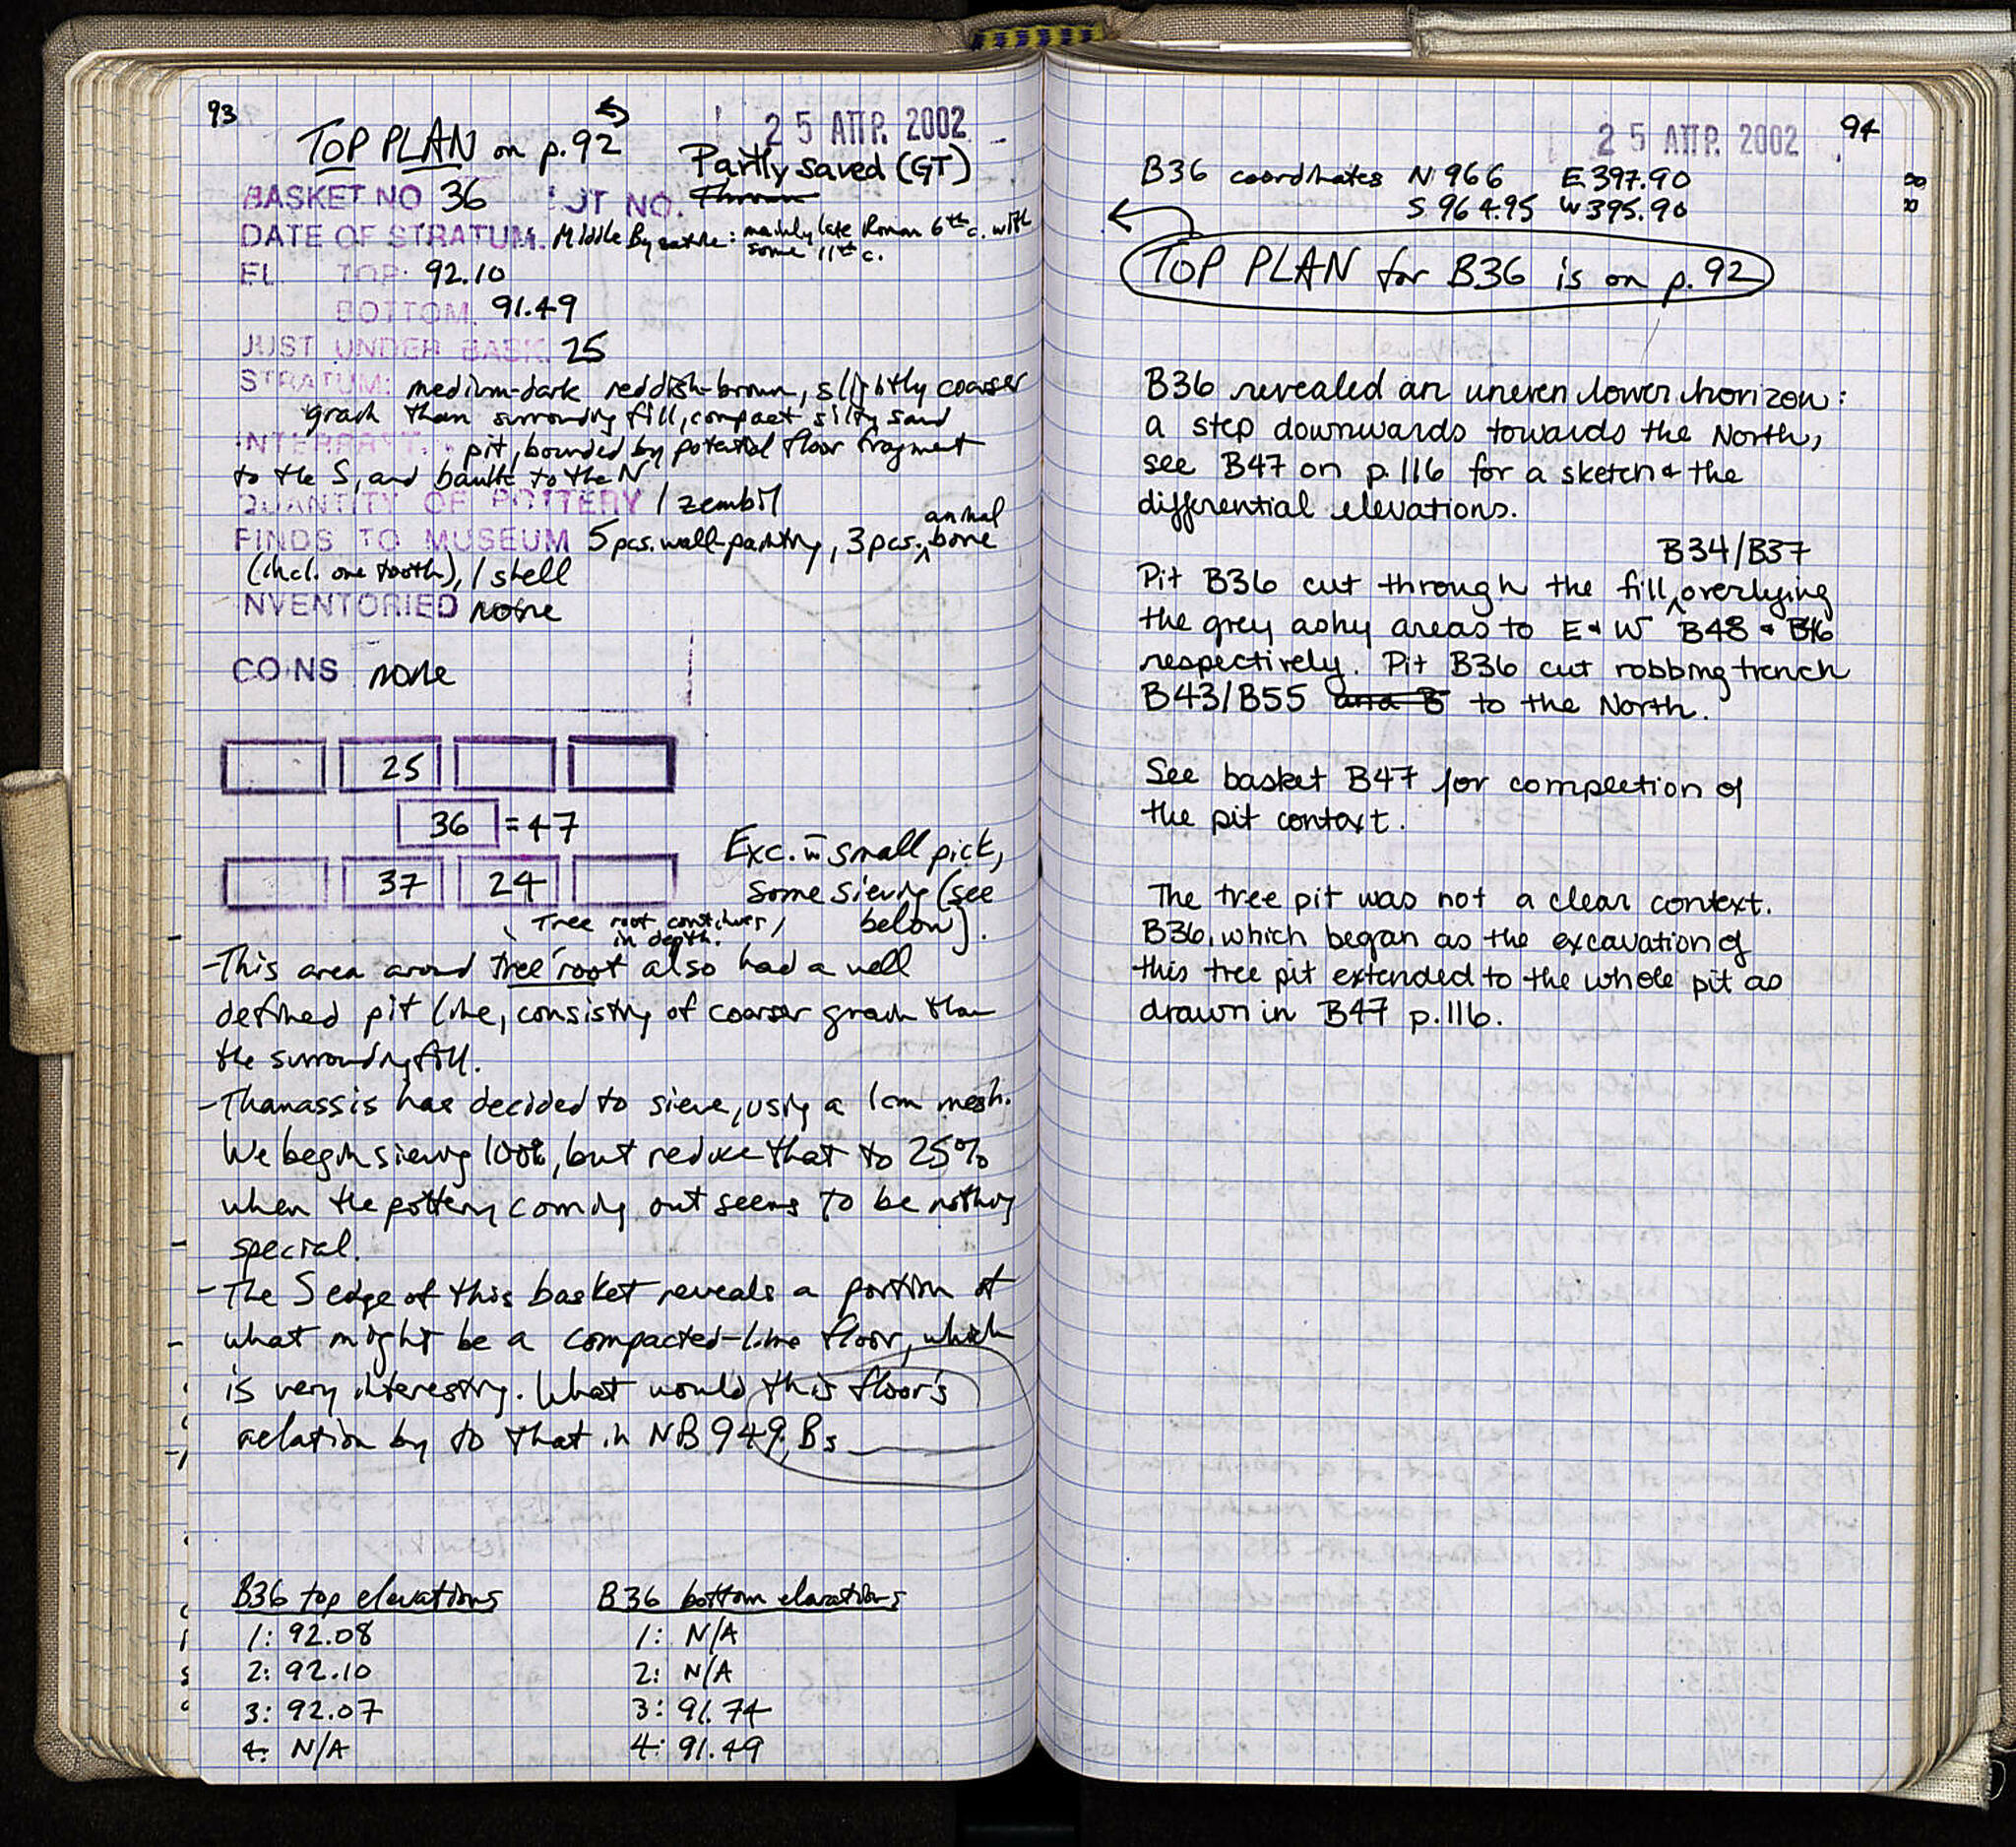 93
TOP PLAN on p.92
25 ΑΠΡ. 2002
Partly saved (GT)
BASKET NO 36 UT NO. Thrown
DATE OF STRATUM. Middle Byzantine: mainly late Roman 6th c. with
some 11th c.
EL. TOP: 92.10
BOTTOM. 91.49
JUST UNDER BASK. 25
STRATUM: medium-dark reddish-brown, slightly coarser
grain than surrounding fill, compact silty sand
INTERPRET.: pit, bounded by potential floor fragment
to the S, and baulk to the N
QUANTITY OF POTTERY 1 zembil
FINDS TO MUSEUM 5 pcs. wall-painting, 3 pcs. animal bone
(incl. one tooth), 1 shell
INVENTORIED none
COINS none
25
36 = 47
37 24
Exc. w̄ small pick,
some sieving (see
below).
Tree root continues
in depth.
-This area around tree root also had a well
defined pit line, consisting of coarser grain than
the surrounding fill.
-Thanassis has decided to sieve, using a 1cm mesh.
We begin sieving 100%, but reduce that to 25%
when the pottery coming out seems to be nothing
special.
-The S edge of this basket reveals a portion of
what might be a compacted-lime floor, which
is very interesting. What would this floor's
relation by to that in NB 949, Bs
B36 top elevations
1: 92.08
2: 92.10
3: 92.07
4: N/A
B36 bottom elevations
1: N/A
2: N/A
3: 91.74
4: 91.49
25 ΑΠΡ. 2002
94
B36 coordinates N 966 E 397.90
S 964.95 W 395.90
TOP PLAN for B36 is on p. 92
B36 revealed an uneven lower horizon:
a step downwards towards the North,
see B47 on p.116 for a sketch & the
differential elevations.
B34/B37
Pit B36 cut through the fill overlying
the grey ashy areas to E & W B48 & B46
respectively. Pit B36 cut robbing trench
B43/B55 and B to the North.
See basket B47 for completion of
the pit context.
The tree pit was not a clear context.
B36, which began as the excavation of
this tree pit extended to the whole pit as
drawn in B47 p.116.